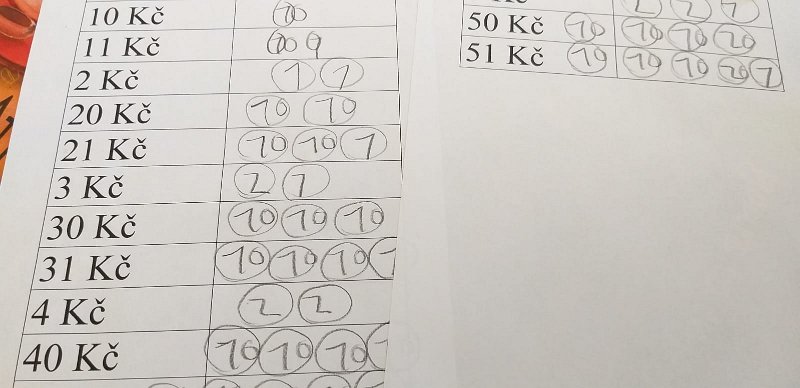 10 Kč 10
11 Kč 10
2 Kč 1 1
20 Kč 10 10
21 Kč 10 10 1
3 Kč 2 1
30 Kč 10 10 10
31 Kč 10 10 10
4 Kč 2 2
40 Kč 10 10 10
2 2 1
50 Kč 10 10 10 20
51 Kč 10 10 10 20 1